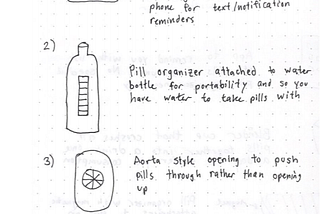 phone for text/notification
reminders
2)
Pill organizer attached to water
bottle for portability and so you
have water to take pills with
3)
Aorta style opening to push
pills through rather than opening
up